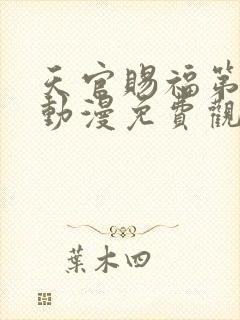 天官賜福第
動漫免費觀
葉木四